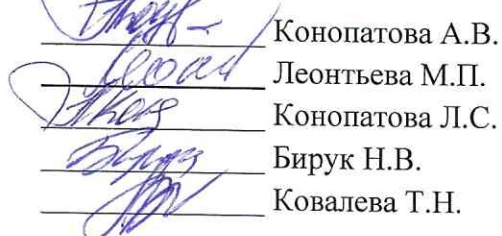 Конопатова А.В.
Леонтьева М.П.
Конопатова Л.С.
Бирук Н.В.
Ковалева Т.Н.